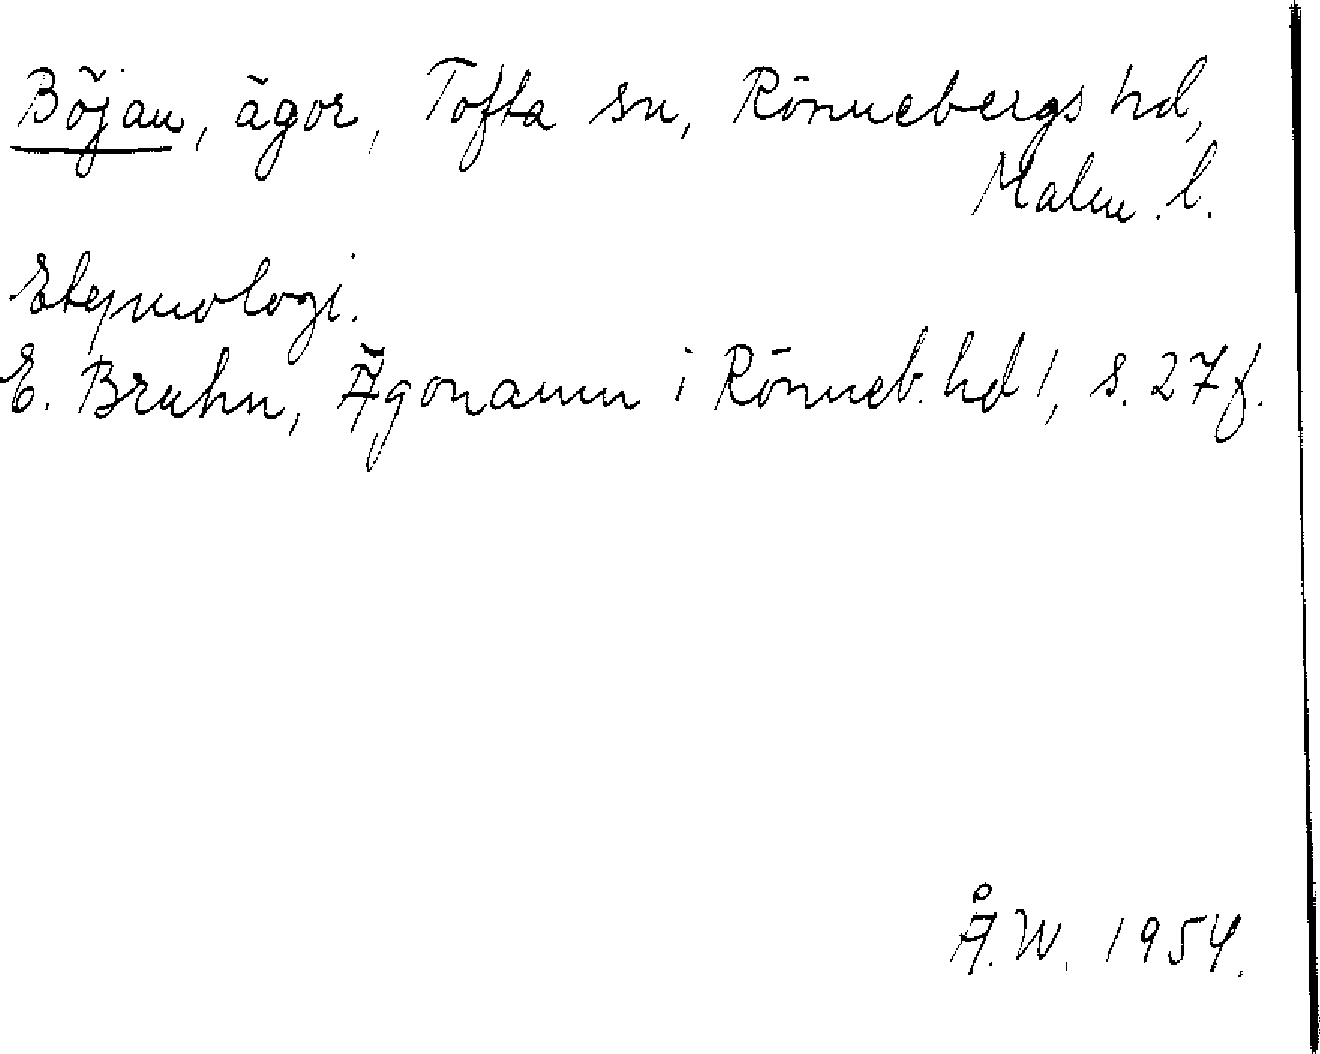 Böjan, ägor, Tofta sn, Rönnebergs hd,
Malm. l.
Etymologi.
E. Bruhn, Ägonamn i Rönneb. hd 1, s. 27 f.
Å.W. 1954.